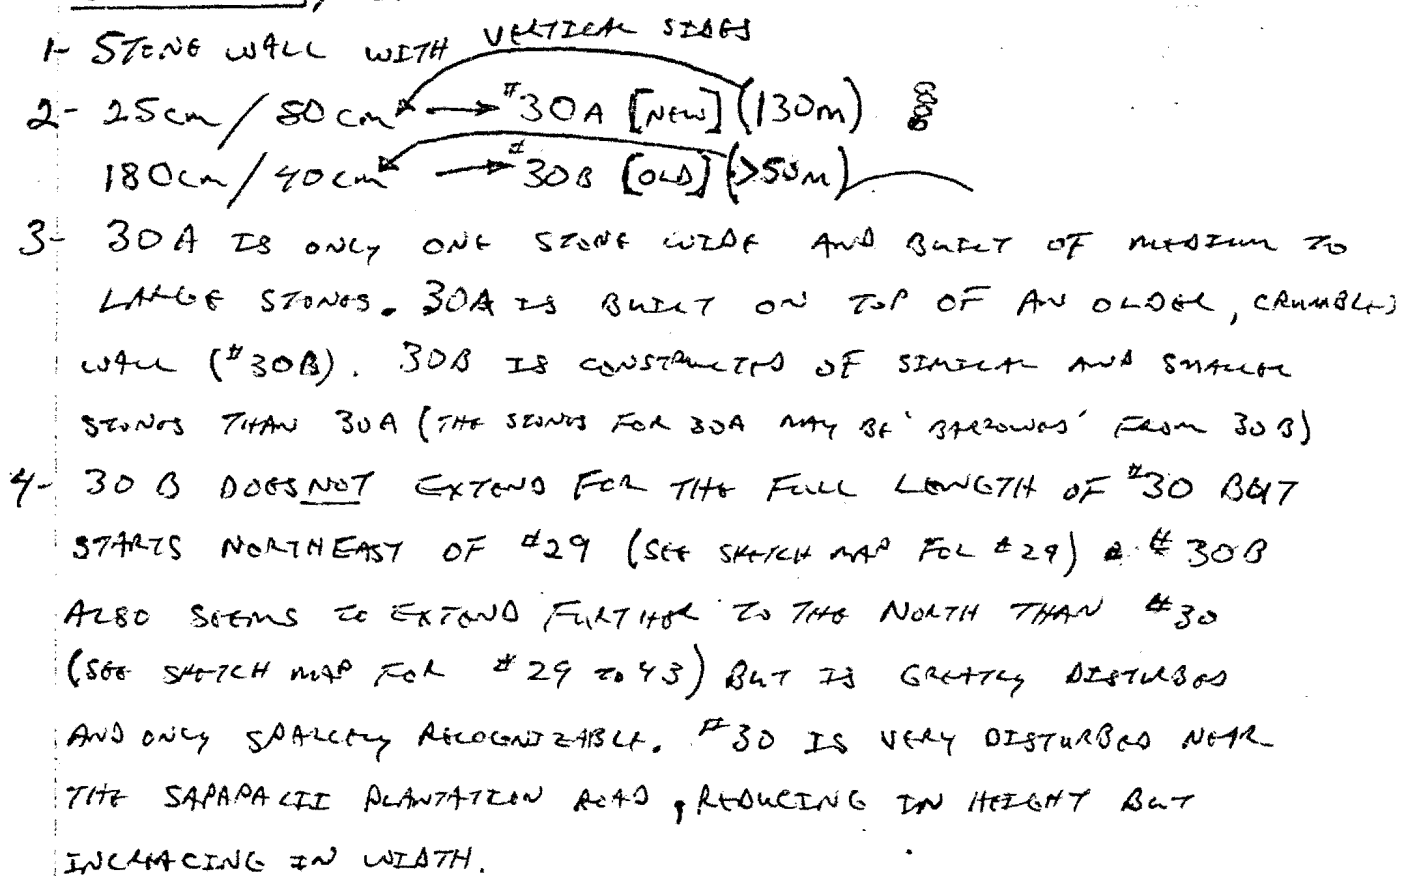 1- STONE WALL WITH VERTICAL SIDES
2- 25cm/80cm → #30A [NEW] (130m)
180cm/40cm → #30B [OLD] (>50m)
3- 30A IS ONLY ONE STONE WIDE AND BUILT OF MEDIUM TO
LARGE STONES. 30A IS BUILT ON TOP OF AN OLDER, CRUMBLED
WALL (#30B). 30B IS CONSTRUCTED OF SIMILAR AND SMALLER
STONES THAN 30A (THE STONES FOR 30A MAY BE 'BARROWED' FROM 30B)
4- 30B DOES NOT EXTEND FOR THE FULL LENGTH OF #30 BUT
STARTS NORTHEAST OF #29 (SEE SKETCH MAP FOR #29) #30B
ALSO SEEMS TO EXTEND FURTHER TO THE NORTH THAN #30
(SEE SKETCH MAP FOR #29 TO 43) BUT IS GREATLY DISTURBED
AND ONLY SPARCELY RECOGNIZABLE. #30 IS VERY DISTURBED NEAR
THE SAPAPALII PLANTATION ROAD, REDUCING IN HEIGHT BUT
INCREACING IN WIDTH.